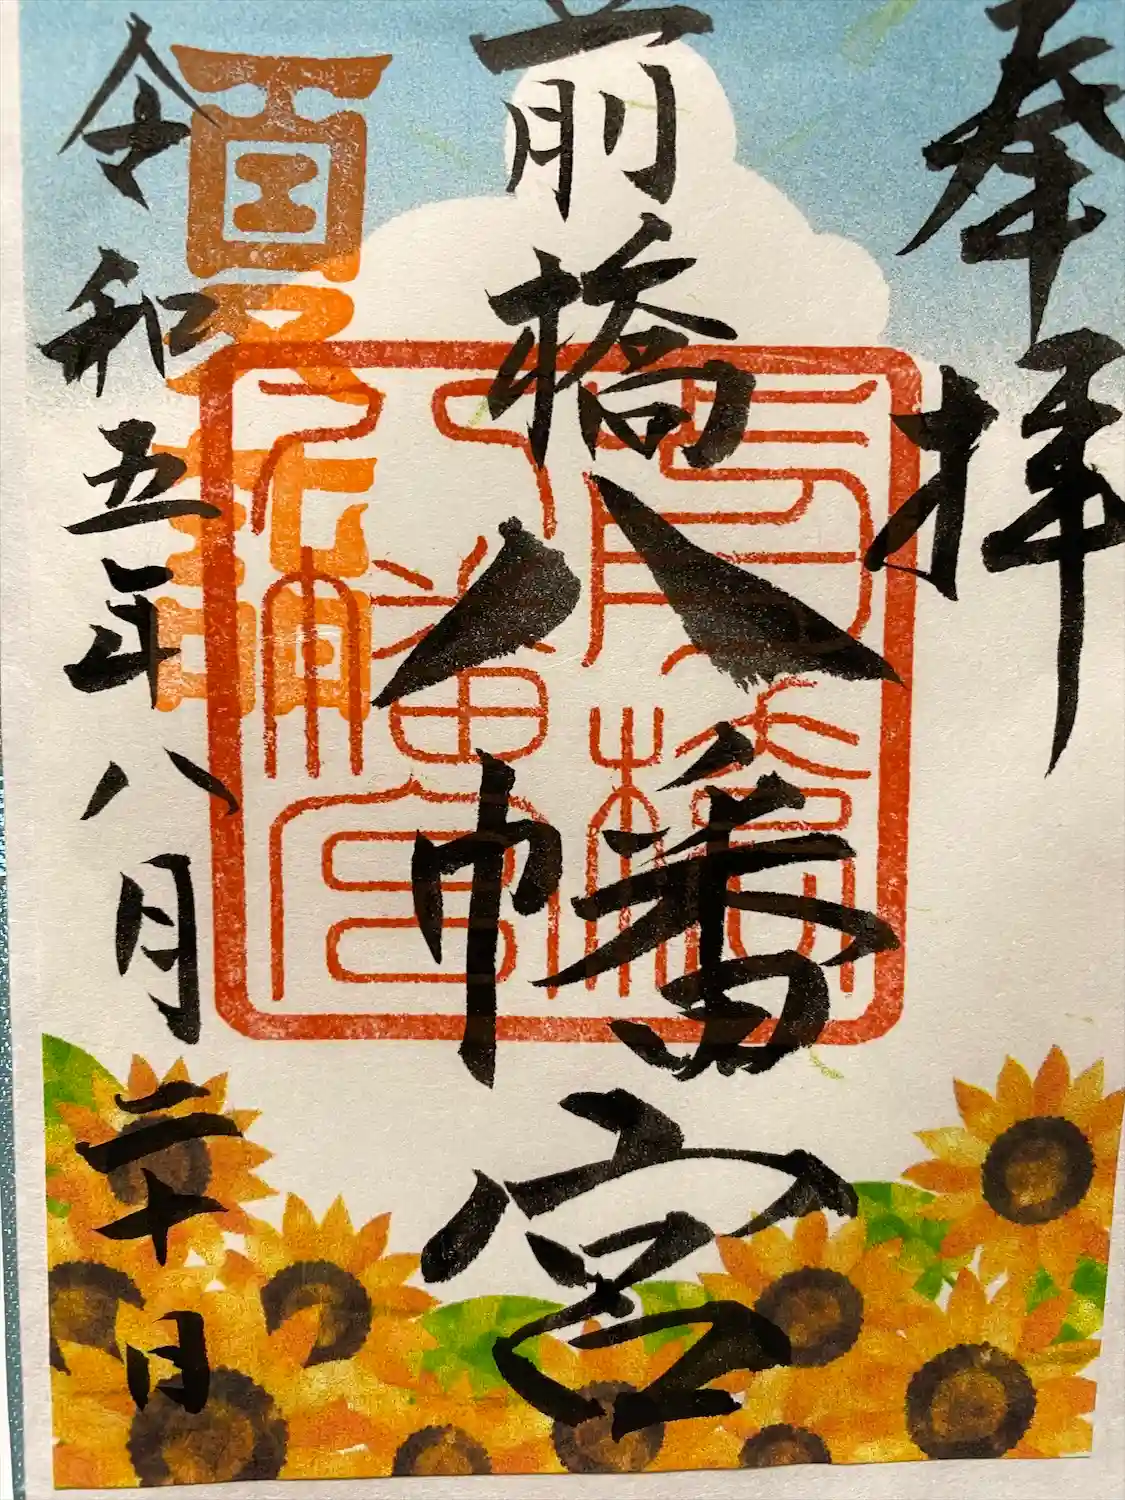 奉拝
前橋八幡宮
夏詣
前橋八幡宮
令和五年八月二十日